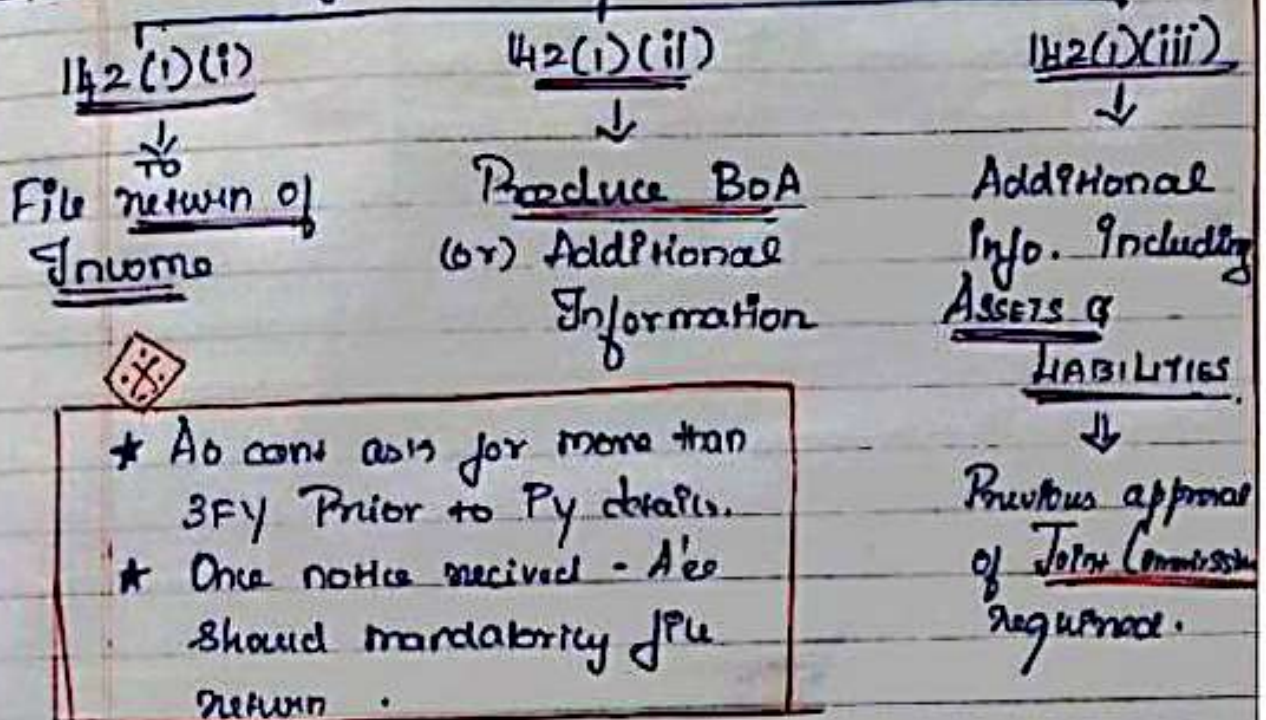 142(1)(i)
TO
File return of
Income
142(1)(ii)
Produce BoA
(or) Additional
Information
142(1)(iii)
Additional
Info. Including
ASSETS &
LIABILITIES.
Previous approval
of Joint Commission
required.
* Ao cant ask for more than
3FY Prior to Py details.
* Once notice recived - A'ee
should mandatorily file
return .